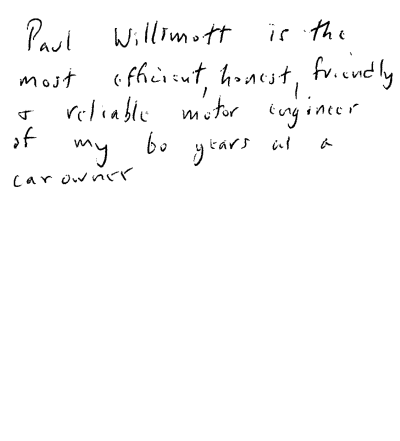 Paul Willsmott is the
most efficient, honest, friendly
& reliable motor engineer
of my 60 years as a
car owner